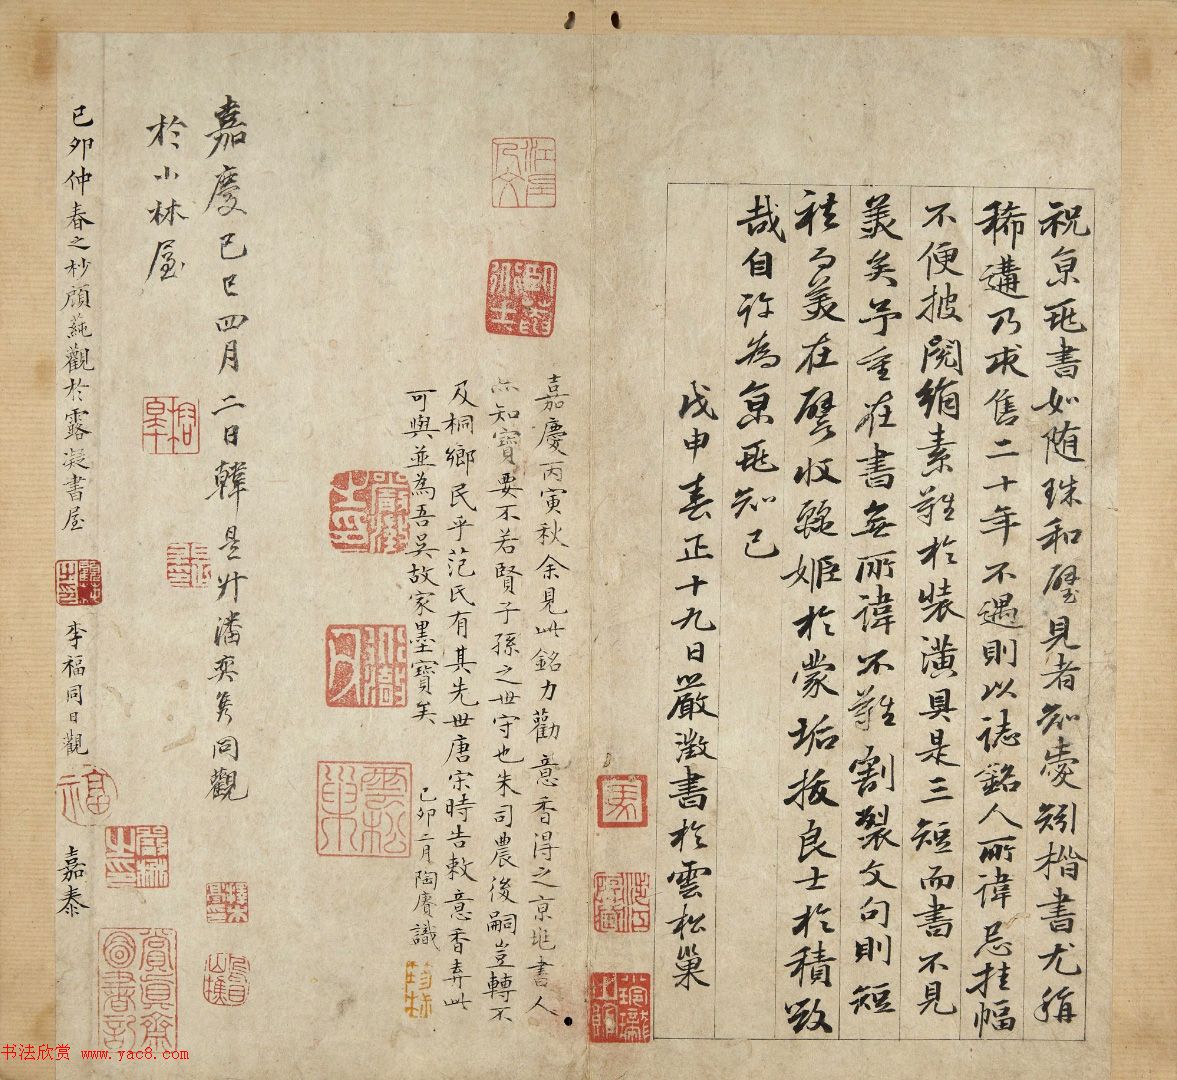 祝京兆書如隨珠和璧見者知愛矧楷書尤稱
稀遘乃求售二十年不遇則以誌銘人所諱忌挂幅
不便披閱絹素難於裝潢具是三短而書不見
美矣予重在書無所諱不難割裂文句則短
袪而美在譬收麗姬於蒙垢拔良士於積毀
哉自許為京兆知己
戊申春正十九日嚴澂書於雲松巢
嘉慶丙寅秋余見此銘力勸意香得之京兆書人
亦知寶要不若賢子孫之世守也朱司農後嗣豈轉不
及桐鄉民乎范氏有其先世唐宋時告敕意香弆此
可與並為吾吳故家墨寶矣
己卯二月陶賡識
嘉慶己巳四月二日韓是升潘奕雋同觀
於小林屋
己卯仲春之杪顧蒓觀於露凝書屋
李福同日觀
嘉泰
雲松巢
賞真齋圖書記
书法欣赏 www.yac8.com